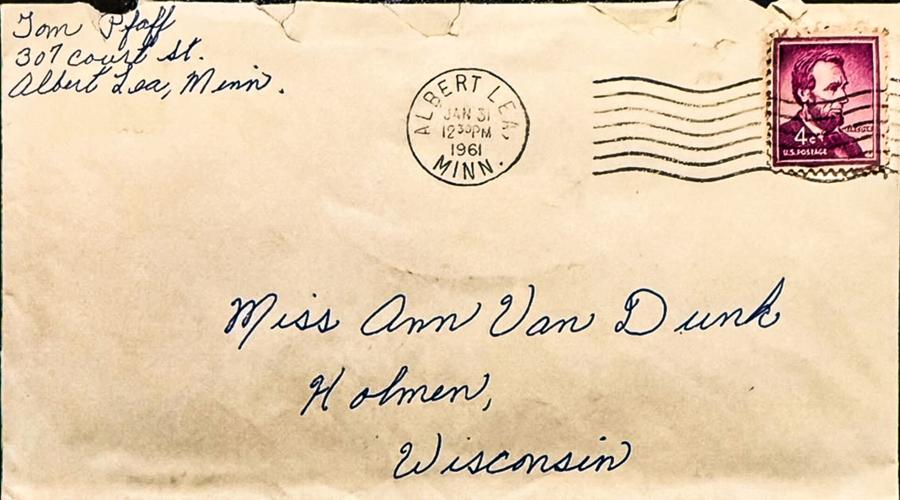 Tom Pfaff
307 court St.
Albert Lea, Minn.
ALBERT LEA
JAN 31
12 30 PM
1961
MINN.
4c
U.S. POSTAGE
Miss Ann Van Dunk
Holmen,
Wisconsin